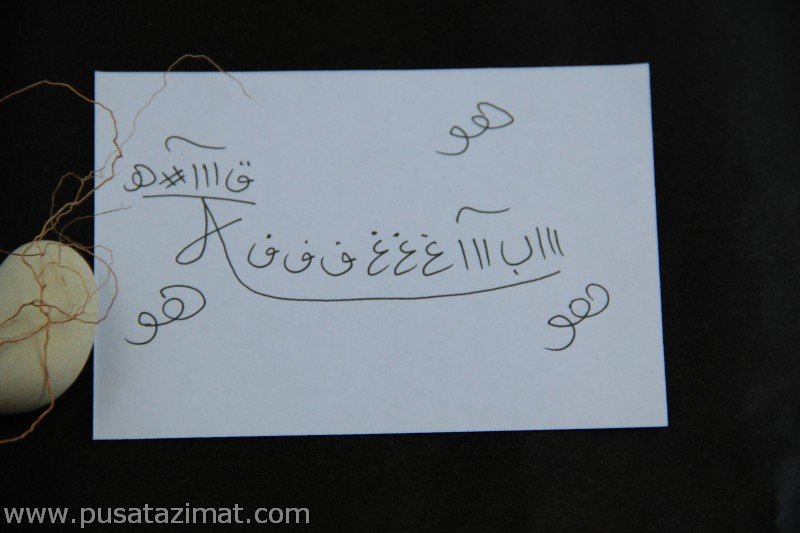 هو
ق ااا~ # هو
اااا ب ااا~ غ غ غ ف ف ف
هو
هو
www.pusatazimat.com